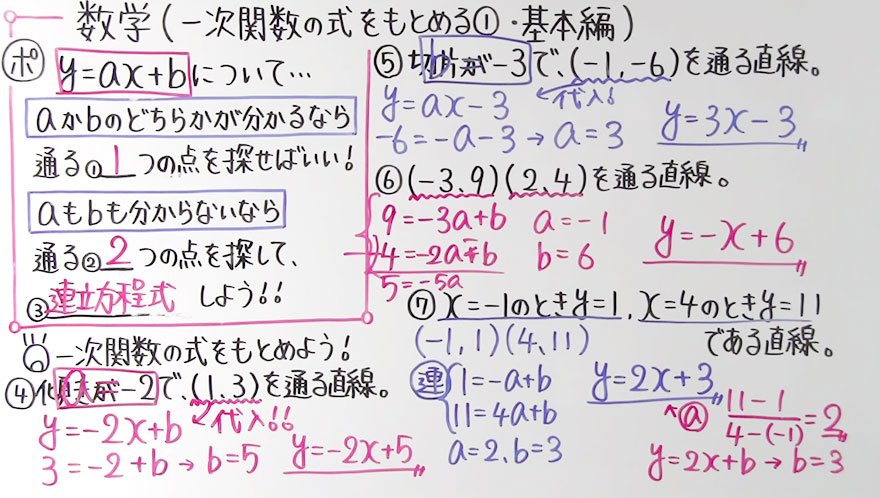 数学(一次関数の式をもとめる①・基本編)
ポ
y=ax+bについて…
aかbのどちらかが分かるなら
通る①1つの点を探せばいい!
aもbも分からないなら
通る②2つの点を探して、
③連立方程式しよう!!
一次関数の式をもとめよう!
④傾きが-2で、(1,3)を通る直線。
a
y=-2x+b 代入!!
3=-2+b→b=5 y=-2x+5
⑤切片が-3で、(-1,-6)を通る直線。
b
y=ax-3 代入!
-6=-a-3→a=3 y=3x-3
⑥(-3,9)(2,4)を通る直線。
9=-3a+b a=-1
-)4=-2a+b b=6 y=-x+6
5=-5a
⑦x=-1のときy=1,x=4のときy=11
である直線。
(-1,1)(4,11)
連 1=-a+b y=2x+3
11=4a+b
a=2,b=3
ⓐ 11-1/4-(-1)=2
y=2x+b→b=3